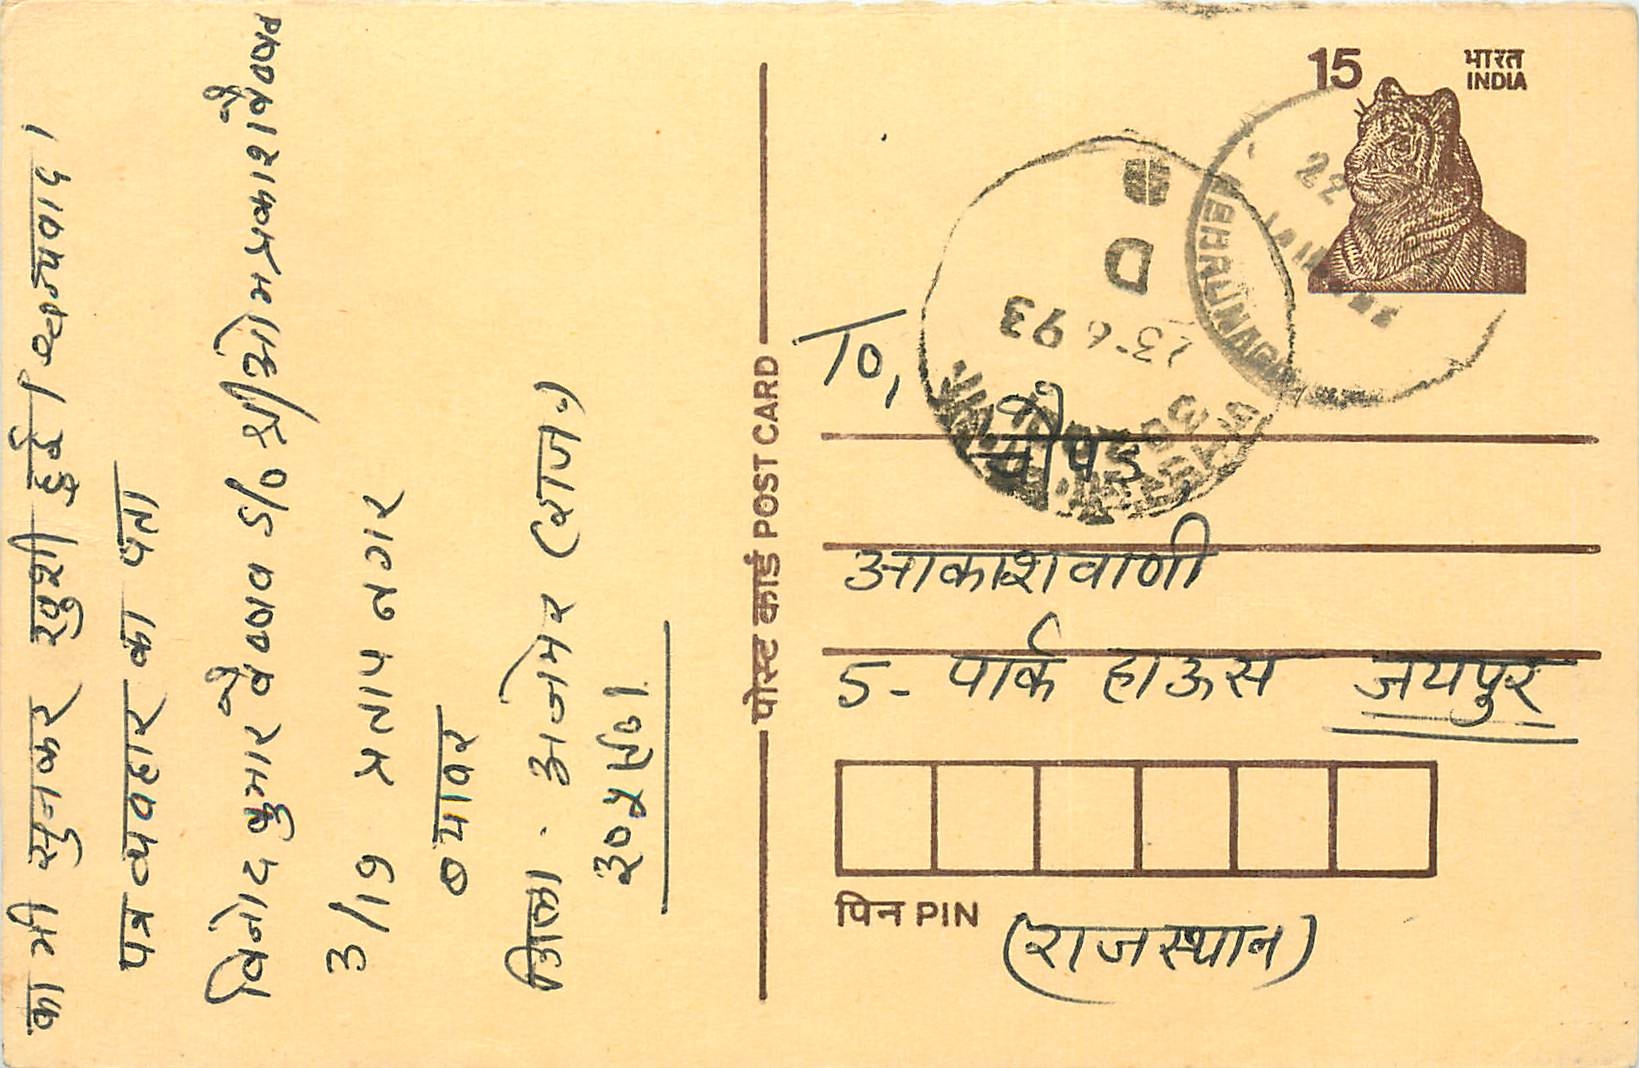 का भी सुनकर खुशी हुई। धन्यवाद।
पत्र व्यवहार का पता
विनोद कुमार वैष्णव S/o श्री ओम प्रकाश वैष्णव
3/19 प्रताप नगर
ब्यावर
जिला. अजमेर (राज.)
३०५९०१
पोस्ट कार्ड POST CARD
15
भारत
INDIA
22
NEHRUNAGAR
D
23-6 93
To,
चौपड़
आकाशवाणी
5- पार्क हाऊस जयपुर
पिन PIN
(राजस्थान)